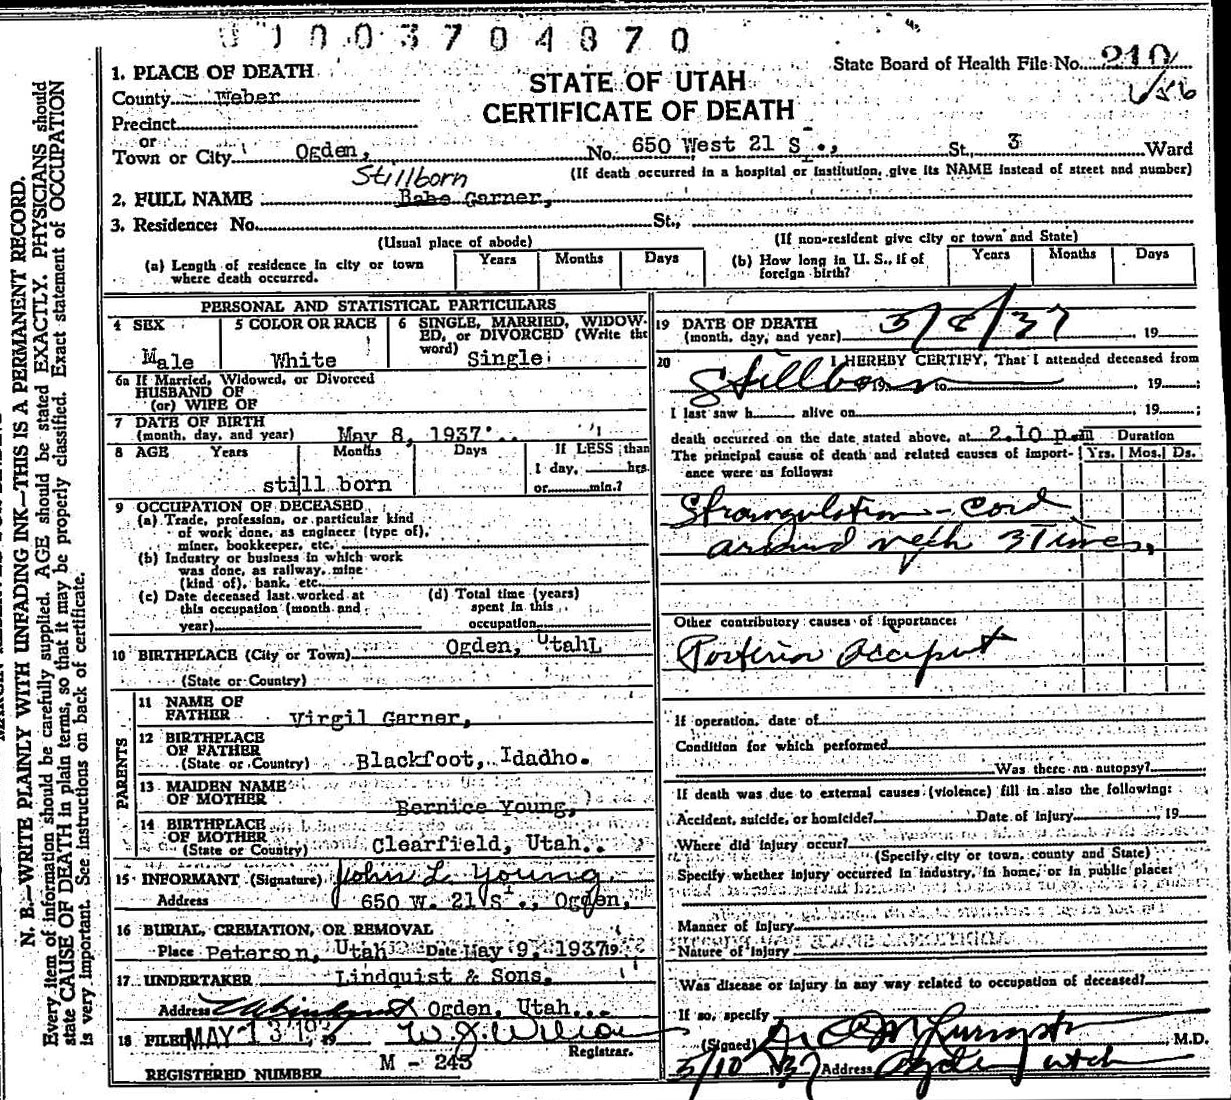 01003704870
State Board of Health File No. 210
1. PLACE OF DEATH
STATE OF UTAH
CERTIFICATE OF DEATH
County Weber
Precinct
or
Town or City Ogden, No. 650 West 21 S., St. 3 Ward
(If death occurred in a hospital or institution, give its NAME instead of street and number)
Stillborn
2. FULL NAME Babe Garner,
3. Residence: No. St.,
(Usual place of abode) (If non-resident give city or town and State)
(a) Length of residence in city or town where death occurred. Years Months Days (b) How long in U. S., if of foreign birth? Years Months Days
PERSONAL AND STATISTICAL PARTICULARS
4 SEX 5 COLOR OR RACE 6 SINGLE, MARRIED, WIDOWED, OR DIVORCED (Write the word)
Male White Single
6a If Married, Widowed, or Divorced
HUSBAND OF
(or) WIFE OF
7 DATE OF BIRTH
(month, day, and year) May 8, 1937
8 AGE Years Months Days If LESS than
1 day, hrs.
still born or min.?
9 OCCUPATION OF DECEASED
(a) Trade, profession, or particular kind
of work done, as engineer (type of),
miner, bookkeeper, etc.
(b) Industry or business in which work
was done, as railway, mine
(kind of), bank, etc.
(c) Date deceased last worked at
this occupation (month and
year)
(d) Total time (years)
spent in this
occupation
10 BIRTHPLACE (City or Town) Ogden, UtahL
(State or Country)
PARENTS
11 NAME OF
FATHER Virgil Garner,
12 BIRTHPLACE
OF FATHER
(State or Country) Blackfoot, Idadho.
13 MAIDEN NAME
OF MOTHER Bernice Young,
14 BIRTHPLACE
OF MOTHER
(State or Country) Clearfield, Utah..
15 INFORMANT (Signature) John L. Young
Address 650 W. 21 S., Ogden,
16 BURIAL, CREMATION, OR REMOVAL
Place Peterson, Utah Date May 9, 1937 19
17 UNDERTAKER Lindquist & Sons,
Address Ogden, Utah...
18 FILED MAY 13 1937 19
Registrar.
M - 243
REGISTERED NUMBER
19 DATE OF DEATH
(month, day, and year) 5/8/37 19
20 I HEREBY CERTIFY, That I attended deceased from
Stillborn 19 to , 19 ;
I last saw h alive on , 19 ;
death occurred on the date stated above, at 2.10 p.m Duration
The principal cause of death and related causes of importance were as follows: Yrs. Mos. Ds.
Strangulation - Cord
around neck 3 Times.
Other contributory causes of importance:
Posterior Occiput
If operation, date of
Condition for which performed
Was there an autopsy?
If death was due to external causes (violence) fill in also the following:
Accident, suicide, or homicide? Date of injury , 19
Where did injury occur?
(Specify city or town, county and State)
Specify whether injury occurred in industry, in home, or in public place:
Manner of Injury
Nature of Injury
Was disease or injury in any way related to occupation of deceased?
If so, specify
(Signed) M.D.
5/10 1937 Address Ogden Utah
N. B.—WRITE PLAINLY WITH UNFADING INK—THIS IS A PERMANENT RECORD.
Every item of information should be carefully supplied. AGE should be stated EXACTLY. PHYSICIANS should
state CAUSE OF DEATH in plain terms, so that it may be properly classified. Exact statement of OCCUPATION
is very important. See instructions on back of certificate.